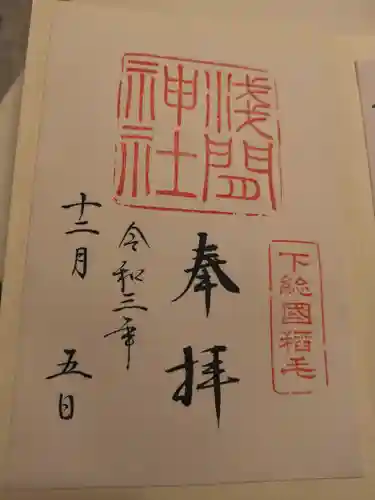 下総國稲毛
奉拝
浅間神社
令和三年
十二月五日